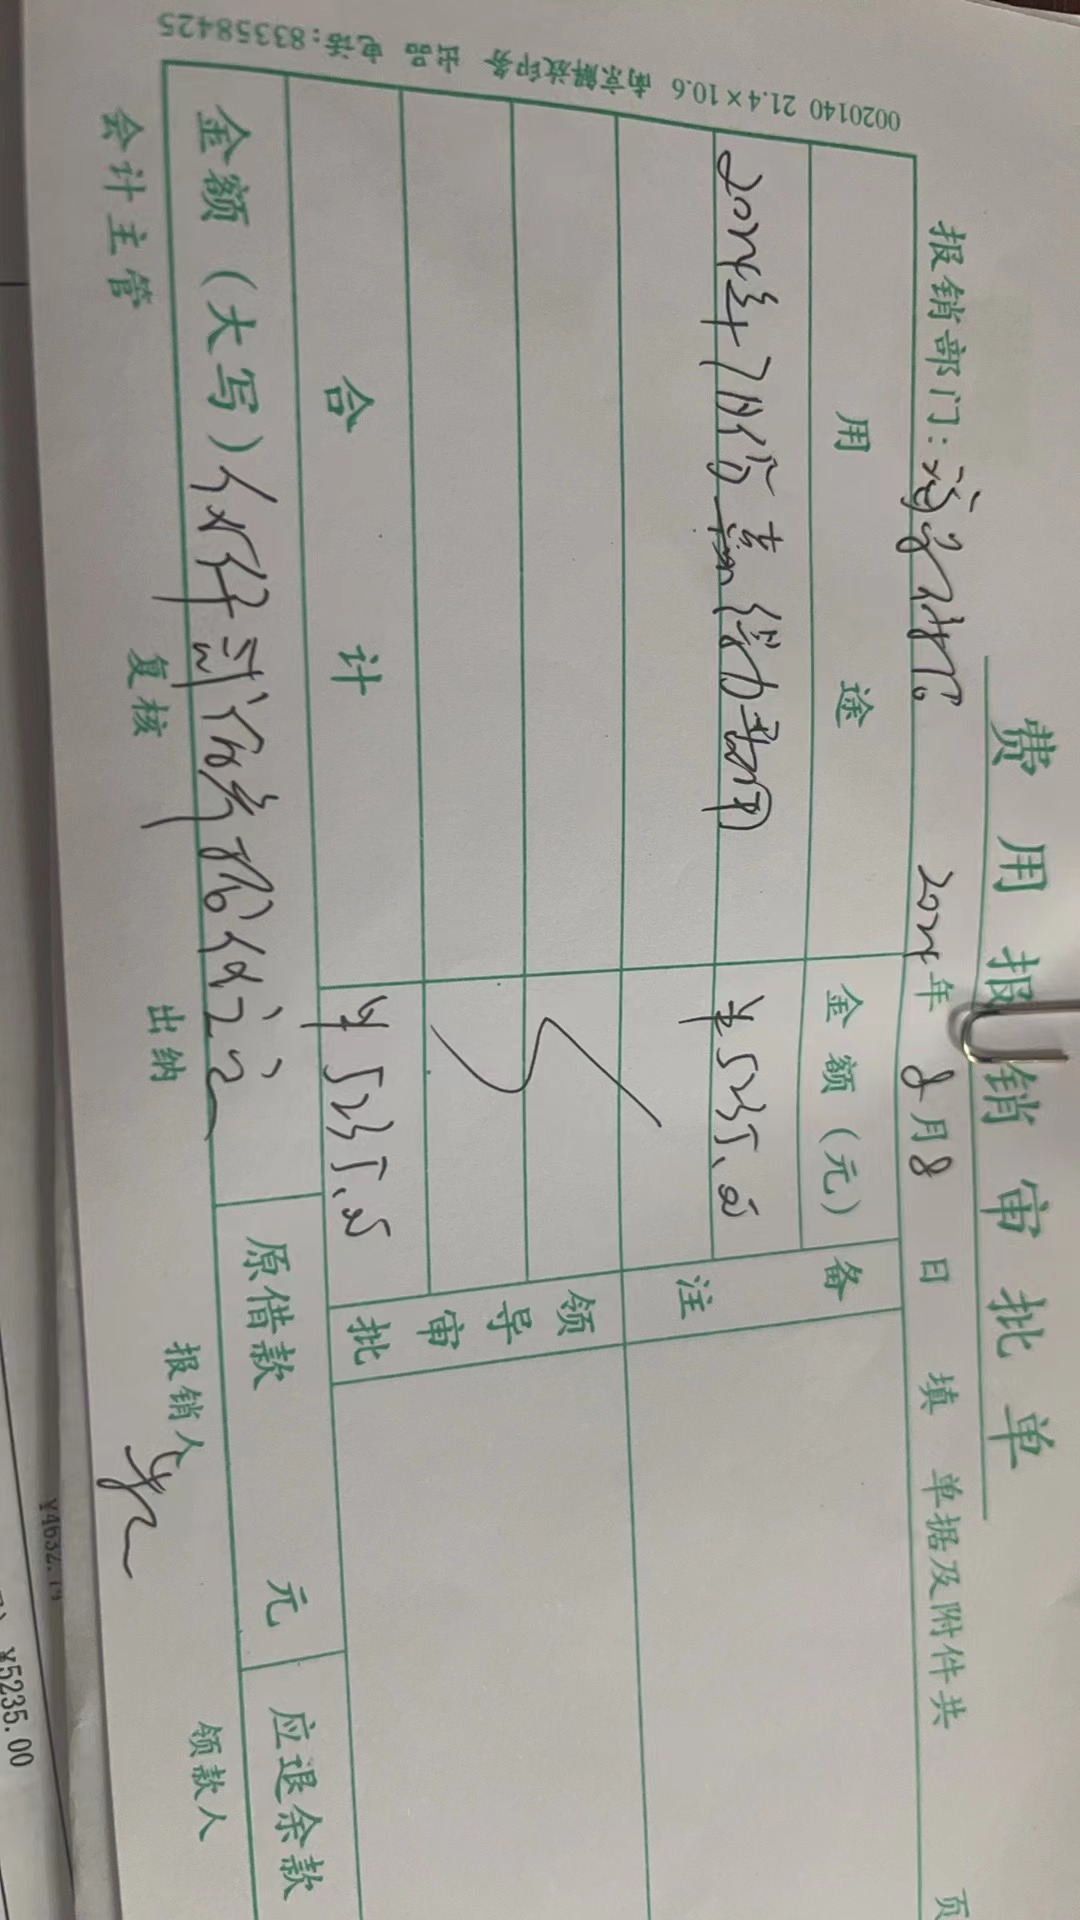 费用报销审批单
报销部门：
2024年8月8日 填 单据及附件共 页
用途 金额（元） 备注
2024年7月份 费用 ¥5235.00
领导审批
合计 ¥5235.00
金额（大写） 伍仟贰佰叁拾伍元 原借款 元 应退余款
会计主管 复核 出纳 报销人 领款人
0020140 21.4×10.6 南京解放印务 出品 电话:83358425
¥5235.00